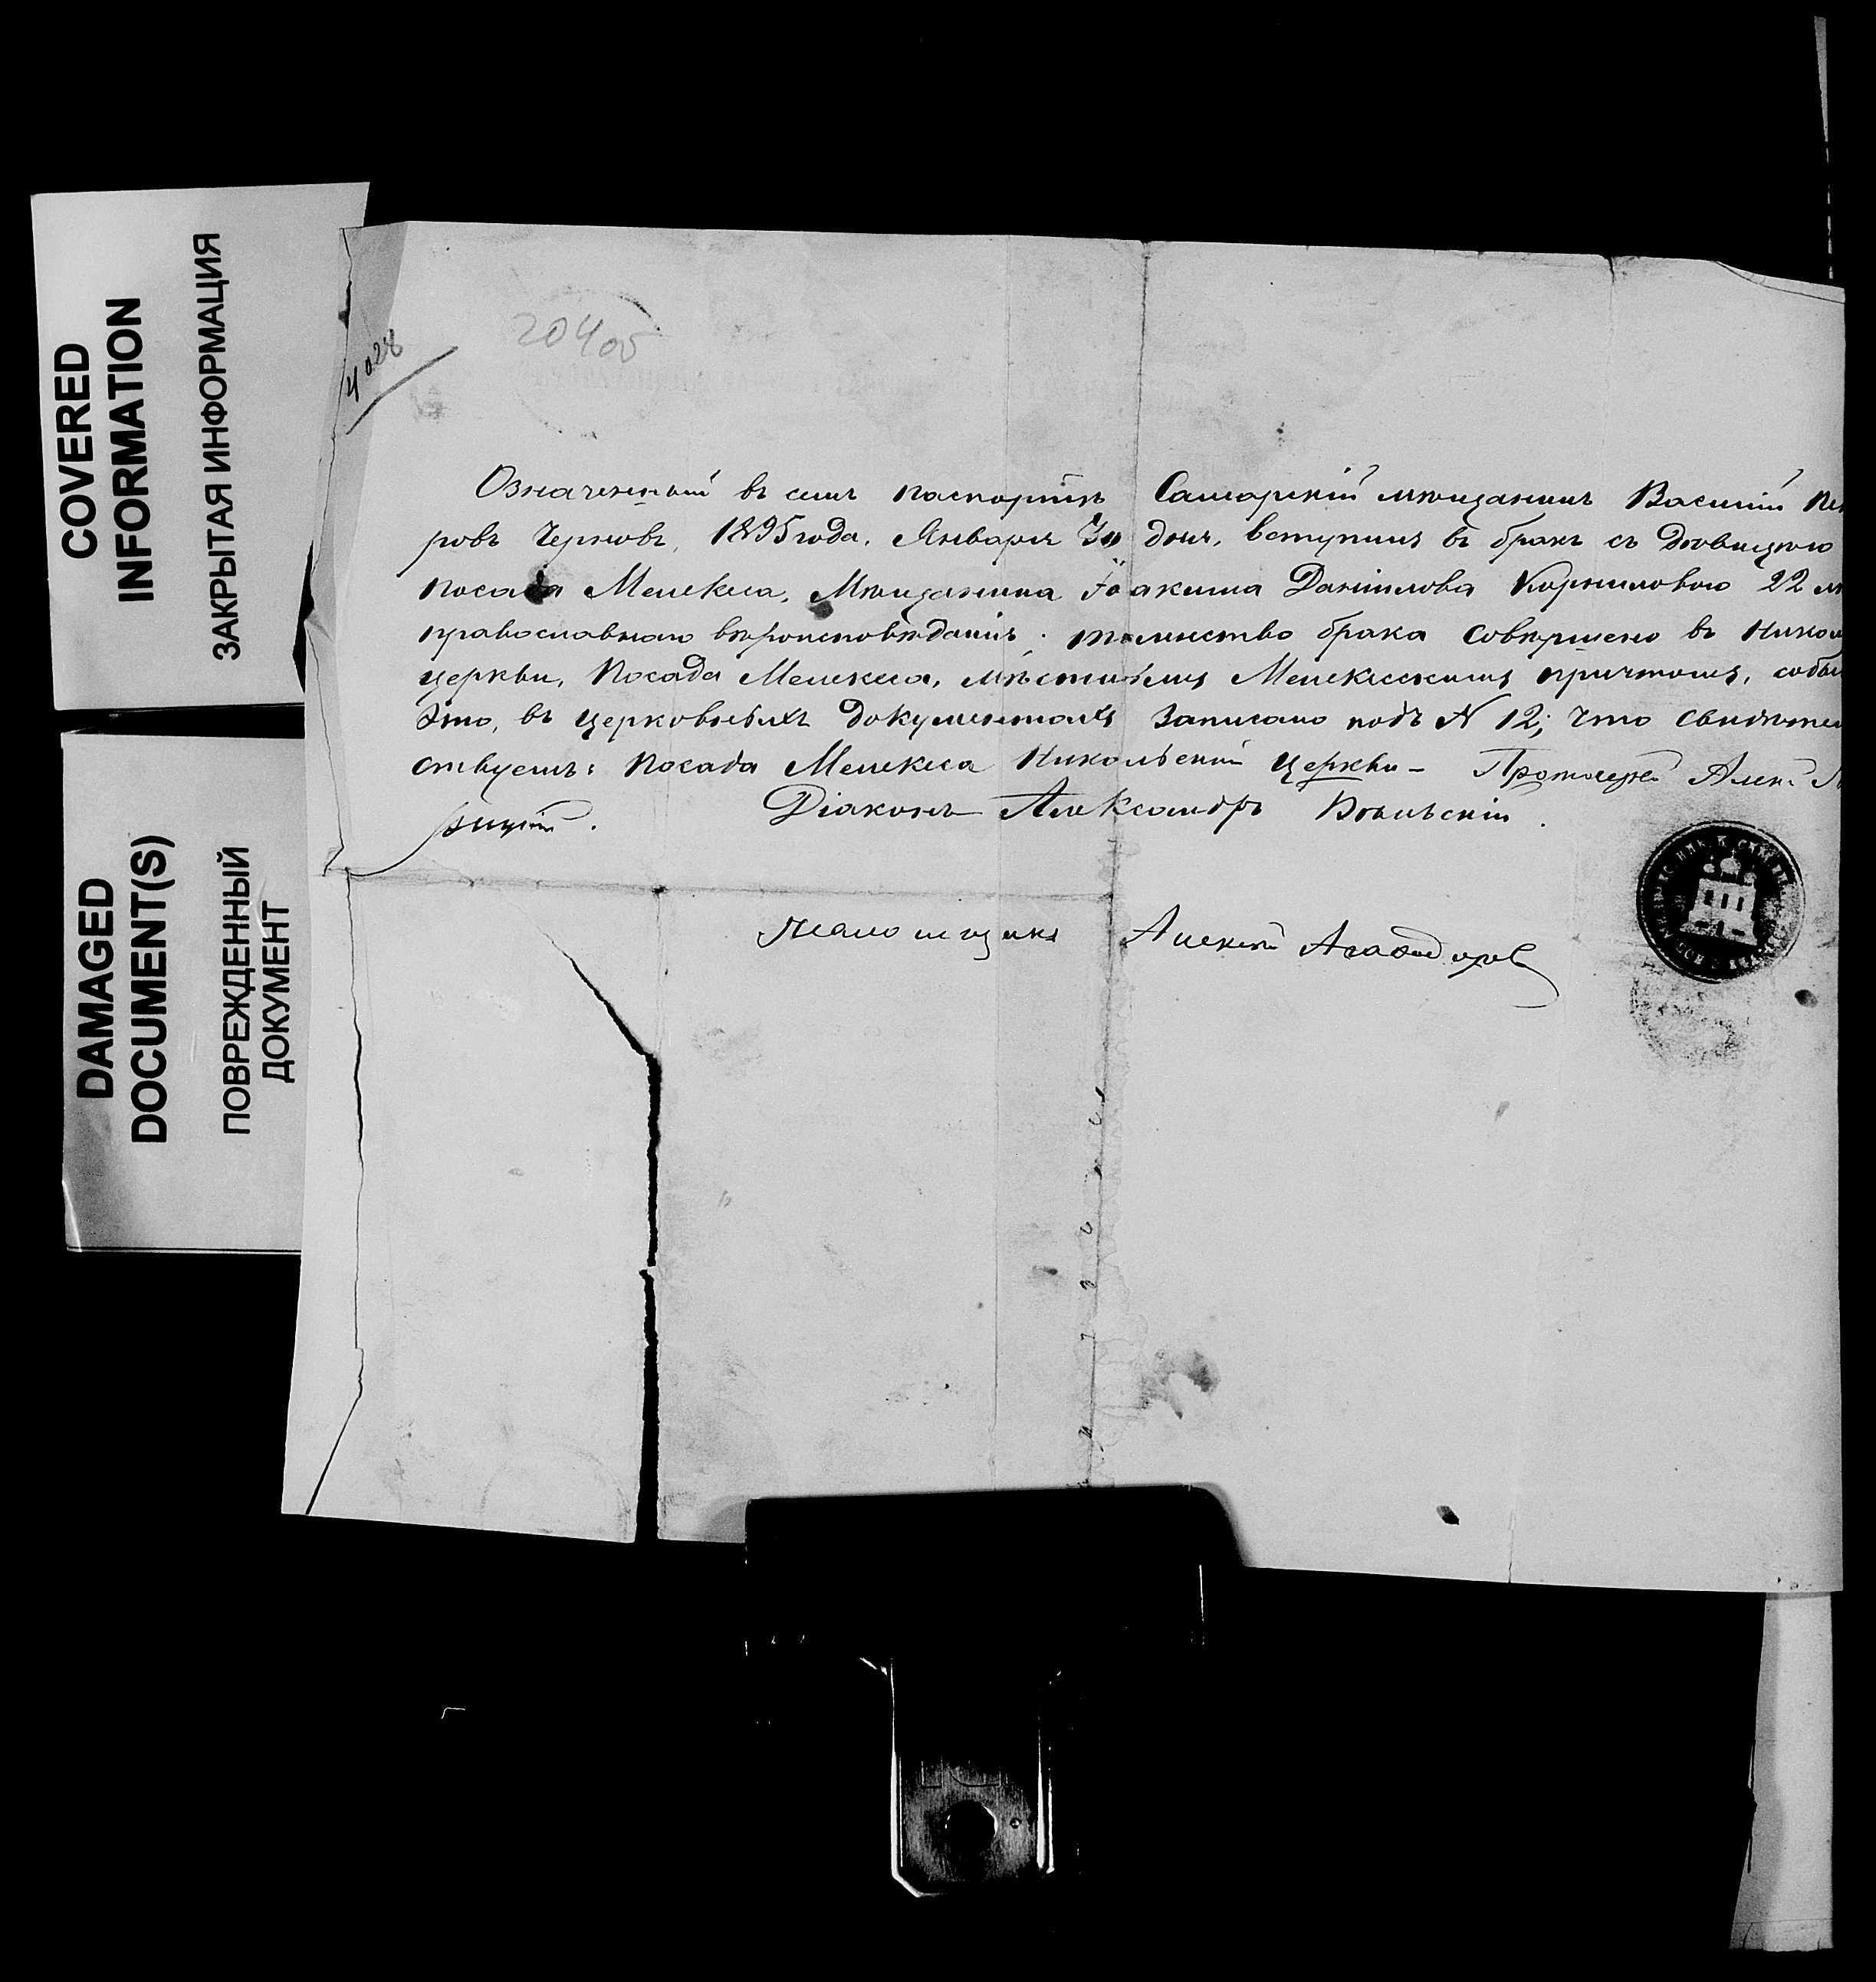 COVERED
INFORMATION
ЗАКРЫТАЯ ИНФОРМАЦИЯ
DAMAGED
DOCUMENT(S)
ПОВРЕЖДЕННЫЙ
ДОКУМЕНТ
4028
20405
Означенный въ семъ паспортѣ Самарскій мѣщанинъ Василій Пет
ровъ Черновъ, 1895 года, Января 30 дня, вступилъ въ бракъ съ дѣвицею
посада Мелекеса, Мѣщанина Іоакима Данилова Корниловою 22 лѣ
православнаго вѣроисповѣданія. таинство брака совершено въ Никол
церкви, Посада Мелекеса, мѣстнымъ Мелекесскимъ причтомъ, событ
это, въ церковныхъ документахъ записано подъ N 12; что свидѣтел
ствуемъ: Посада Мелекеса Никольской церкви - Протоіерей Алек
Діаконъ Александръ
Псаломщикъ Алексѣй